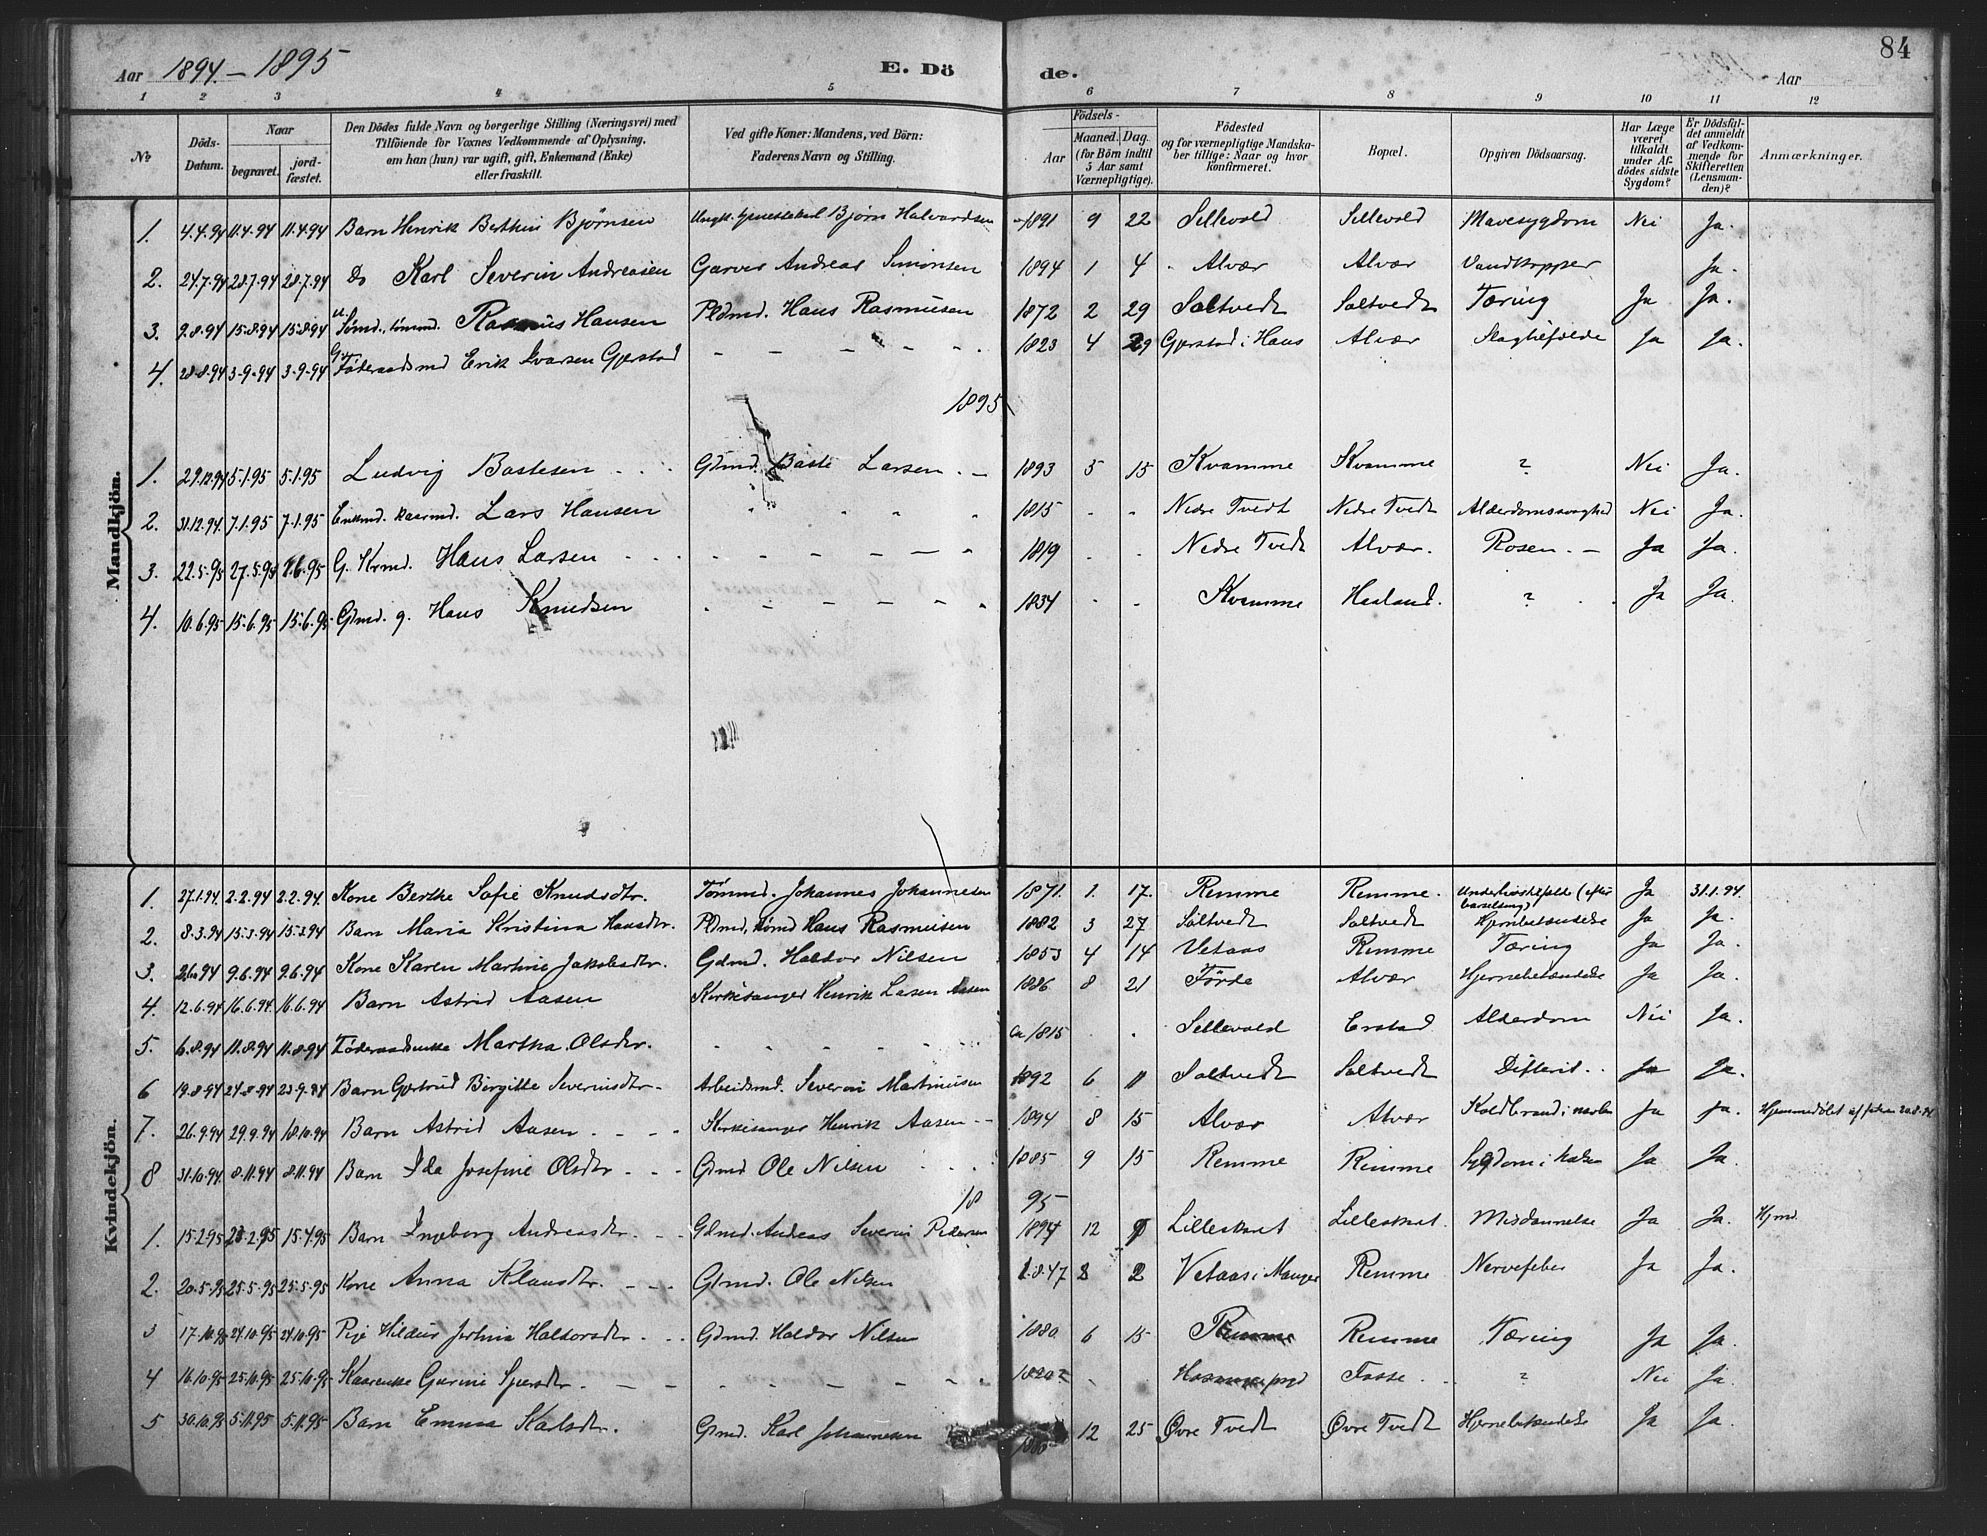 84
Aar 1894. – 1895 E. Dö de. Aar
1 2 3 4 5 6 7 8 9 10 11 12
№ Döds-Datum. Naar begravet. jord-fæstet. Den Dödes fulde Navn og borgerlige Stilling (Næringsvei) med Tilföiende for Voxnes Vedkommende af Oplysning, om han (hun) var ugift, gift, Enkemand (Enke) eller fraskilt. Ved gifte Koner: Mandens, ved Börn: Faderens Navn og Stilling. Födsels- Aar Maaned. Dag. (for Börn indtil 5 Aar samt Værnepligtige). Födested og for værnepligtige Mandskaber tillige: Naar og hvor konfirmeret. Bopæl. Opgiven Dödsaarsag. Har Læge været tilkaldt under Afdödes sidste Sygdom? Er Dödsfaldet anmeldt af Vedkommende for Skifteretten (Lensmanden)? Anmærkninger.
Mandkjön.
1. 4.4.94 11.4.94 11.4.94 Barn Henrik Berthin Bjørnsen Ungk. Bjørn Halvardsen 1891 9 22 Sellevold Sellevold Mavesygdom Nei Ja.
2. 24.7.94 28.7.94 28.7.94 Do Karl Severin Andreasen Garver Andreas Simonsen 1894 1 4 Alvær Alvær Vandkopper Ja.
3. 9.8.94 15.8.94 15.8.94 u. Sømd., tømmd. Rasmus Hansen Pldmd. Hans Rasmusen 1872 2 29 Saltvedt Saltvedt Tæring Ja Ja.
4. 28.8.94 3-9-94 3-9-94 G. Føderaadsmd Erik Ivarsen Gjerstad – – – 1823 4 29 Gjerstad i Haus Alvær Slagtilfælde Ja Ja.
1895
1. 29.12.94 5.1.95 5.1.95 Ludvig Bastesen Gdmd. Baste Larsen. – 1893 5 15 Kvamme Kvamme ? Nei Ja.
2. 31.12.94. 7.1.95 7.1.95 Enkmd. kaarmd. Lars Hansen 1815 - - Nedre Tvedt Nedre Tvedt Alderdomssvaghed Nei Ja.
3. 22.5.95 27.5.95 8.6.95 G. Krmd. Hans Larsen – – – 1819 Nedre Tvedt Alvær. Rosen. – Ja Ja.
4. 10.6.95 15.6.95 15.6.95 Gdmd. g. Hans Knudsen – – – 1834 - - Kvamme Haaland. ? Ja Ja.
Kvindekjön.
1. 27.1.94 2.2.94 2.2.94. Kone Berthe Sofie Knudsdtr. Tømmd. Johannes Johannesen 1871. 1. 17. Remme Remme. Underlivstilfælde (efter barselseng) Ja 31.1.94.
2. 8.3.94 15.3.94 15.3.94 Barn Maria Kristina Hansdtr. Pldmd, tømd Hans Rasmusen 1882 3 27 Saltvedt Saltvedt Hjernebetændelse Ja Ja.
3. 2.6.94 9.6.94 9.6.94 Kone Karen Martine Jakobsdtr. Gdmd. Haldor Nilsen 1853 4 14 Vetaas Remme Tæring Ja Ja.
4. 12.6.94 16.6.94. 16.6.94 Barn Astrid Aasen Kirkesanger Henrik Larsen Aasen 1886 8 21 Förde Alvær Hjernebetændelse Ja Ja.
5. 6.8.94 11.8.94 11.8.94 Føderaadsenke Martha Olsdtr. ca 1815 Sellevold Erstad Alderdom Nei Ja.
6 19.8.94 24.8.94 23.9.94 Barn Gjertrud Birgitte Severinsdtr. Arbeidsmd. Severin Martinusen 1892 6 11 Saltvedt Saltvedt Difterit. Ja Ja.
7. 26.9.94 29.9.94 18.10.94 Barn Astrid Aasen Kirkesanger Henrik Aasen – 1894 8 15 Alvær Alvær Koldbrand i navlen Ja Ja. Hjemmedøbt af faderen 20.8.94
8 31.10.94. 8.11.94 8.11.94 Barn Ida Josefine Olsdtr Gdmd Ole Nilsen 1885 9 15 Remme Remme Sygdom i halsen Ja Ja.
18 95
1. 15.2.95 23.2.95 15.4.95 Barn Ingeborg Andreasdtr. Gdmd. Andreas Severin Pedersen 1894 12 Lilleskaret Lilleskaret. Misdannelse Ja Ja. Hjmd.
2. 20.5.95 25.5.95 25.5.95 Kone Anna Klausdtr. Gdmd. Ole Nilsen 1847 8 2 Vetaas i Manger Remme Nervefeber Ja Ja.
3 17.10.95 24.10.95 24.10.95 Pige Hildur Haldorsdtr. Gdmd Haldor Nilsen 1880 6 15 Remme Remme Tæring Ja Ja.
4 16.10.95 25.10.95 25.10.95 Kaarenke Gurine Sjursdtr. – – – 1820? Fosse ? Nei Ja.
5 30.10.95 5.11.95 5.11.95 Barn Emma Karlsdtr. Gdmd. Karl Johannesen 12 25 Øvre Tvedt Øvre Tvedt Hjernebetændelse Ja Ja.